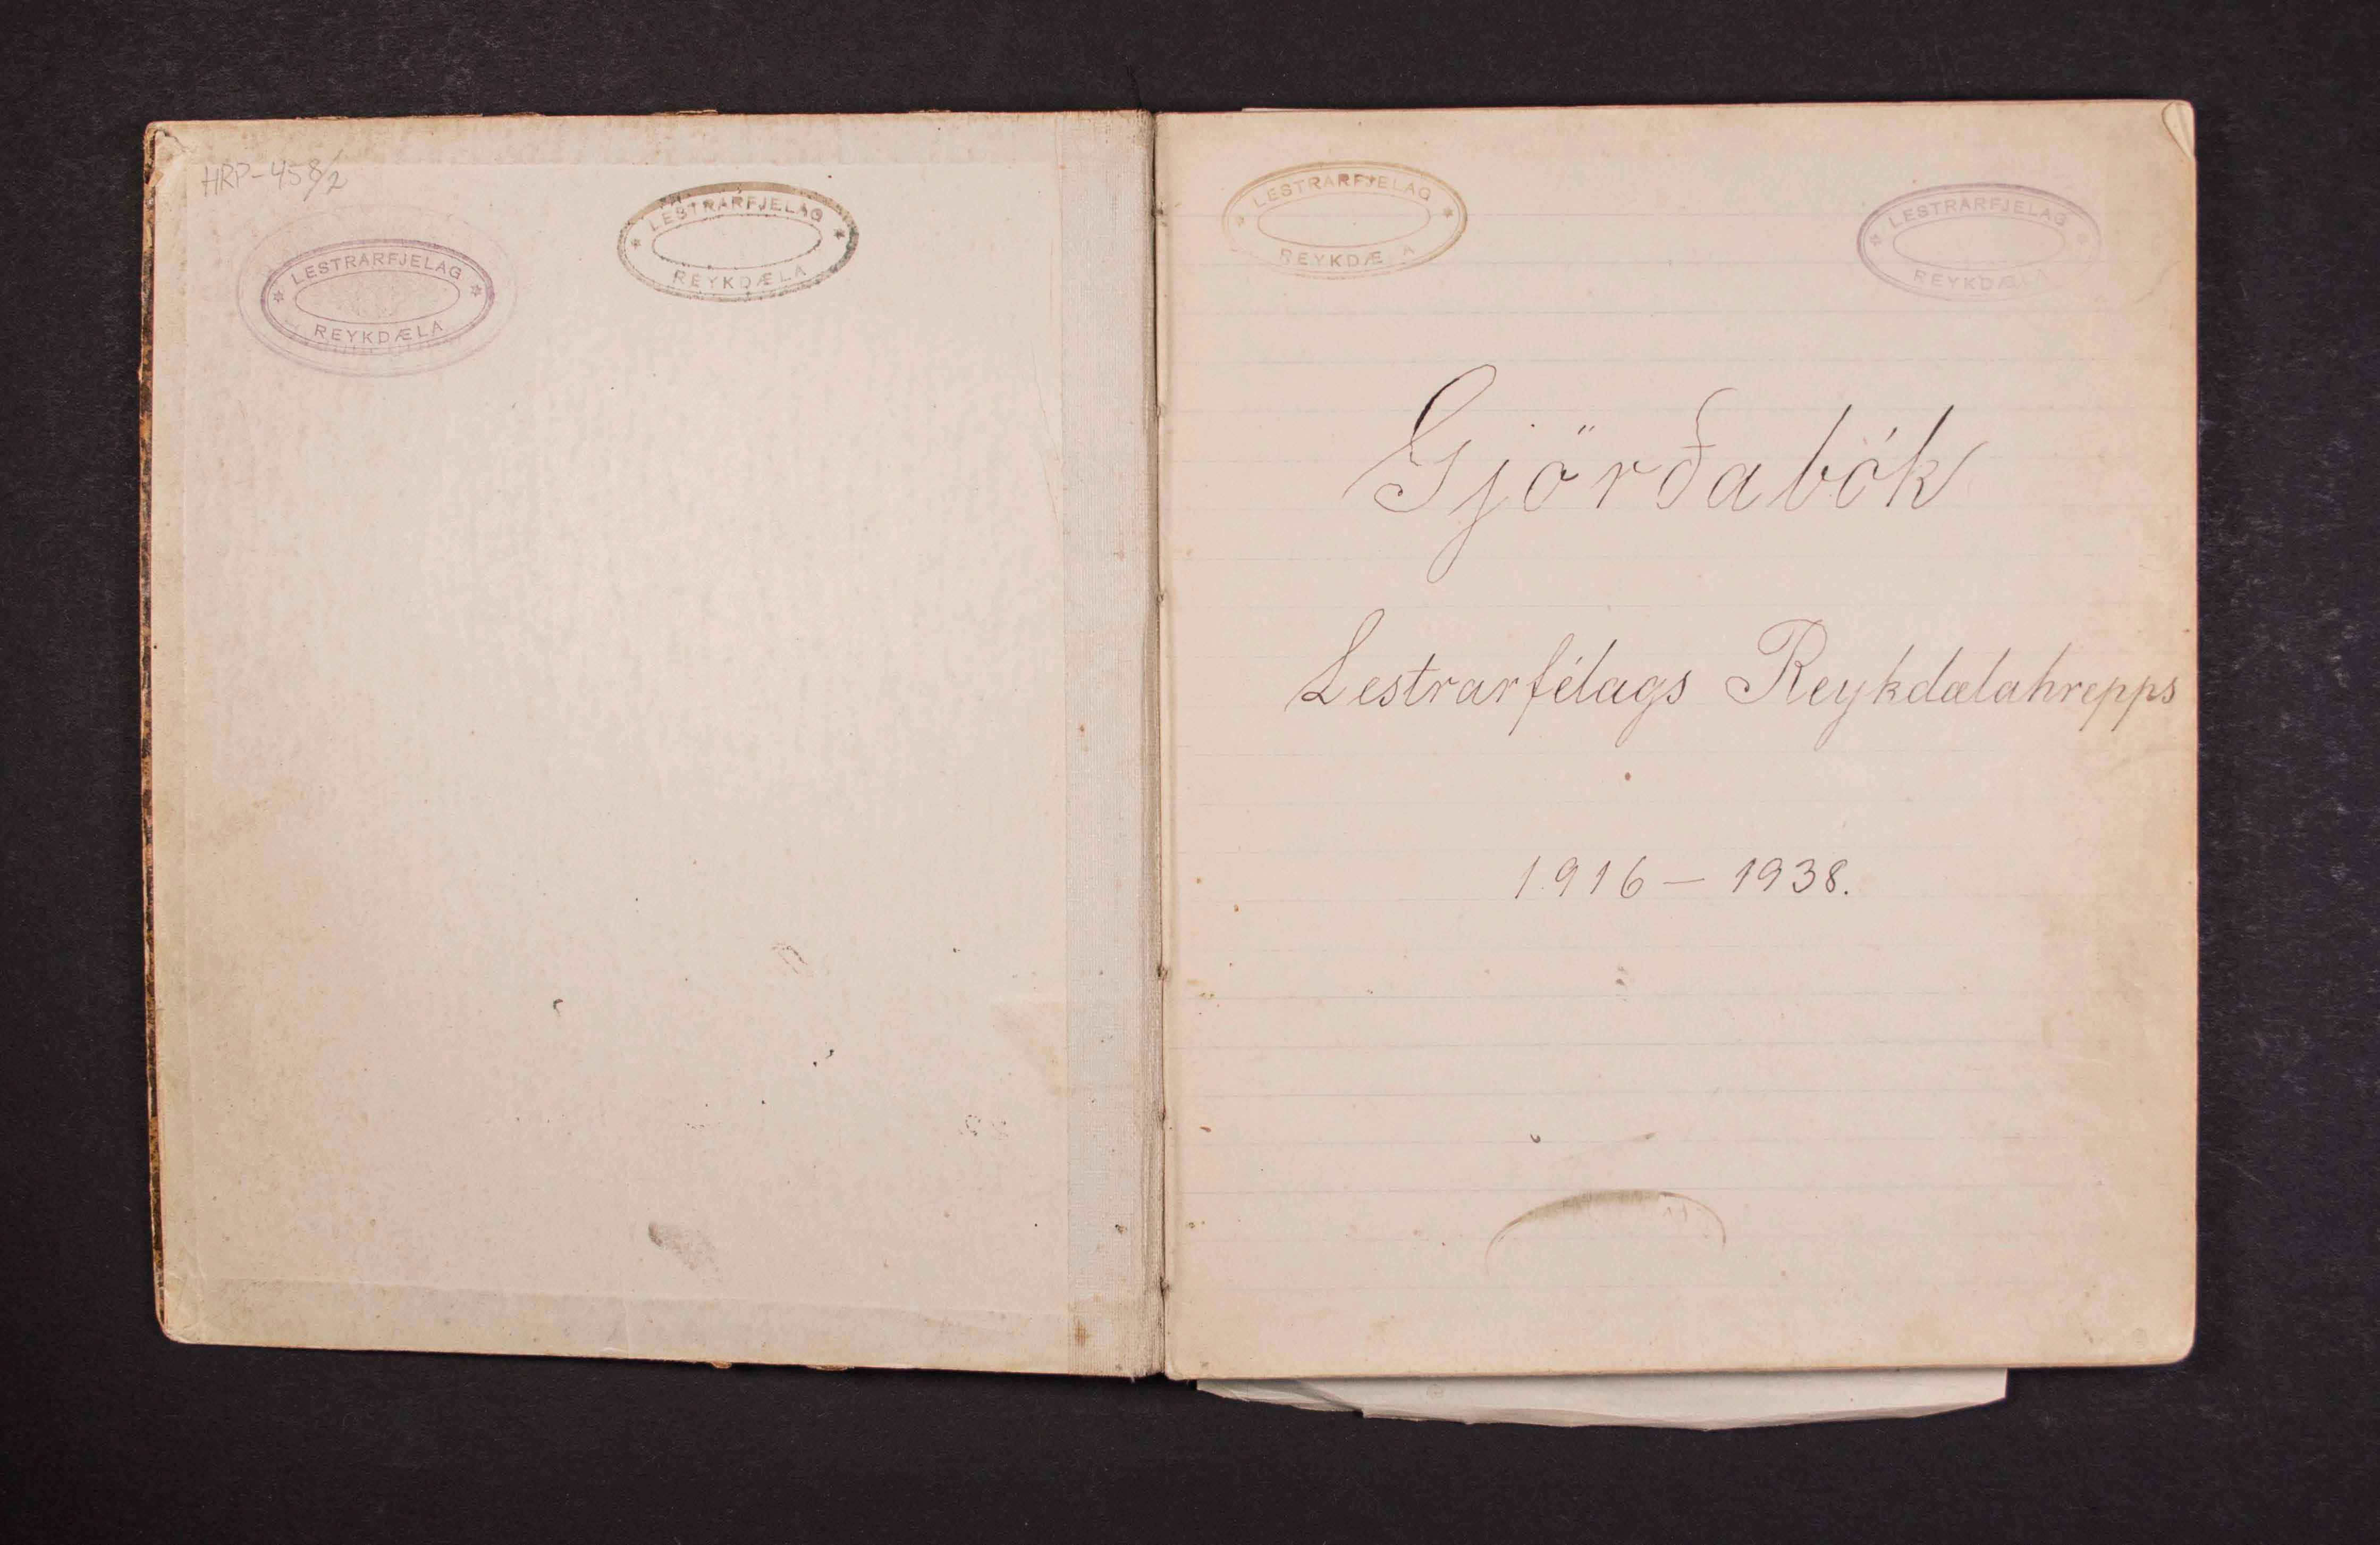 HRP-458/2
LESTRARFJELAG
REYKDÆLA
LESTRARFJELAG
REYKDÆLA
LESTRARFJELAG
REYKDÆ A
LESTRARFJELAG
REYKDÆL
Gjörðabók
Lestrarfélags Reykdælahrepps
1916 – 1938.